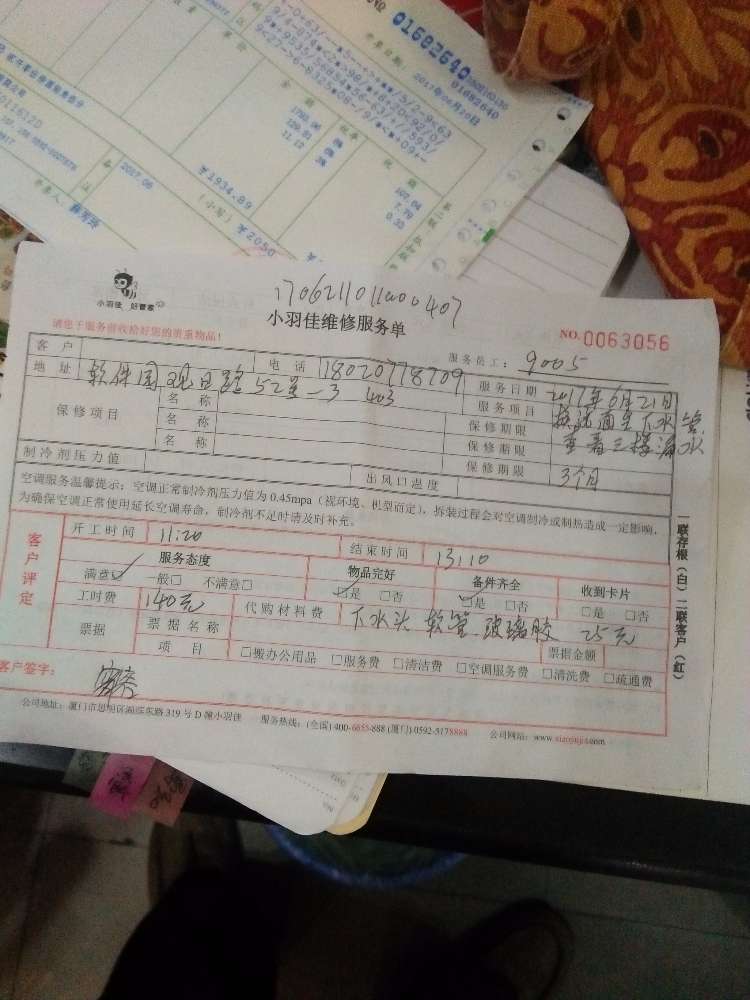 № 01682640
01682640
开票日期：
2017年06月20日
¥1934.89
(小写) ¥2050
2017.06
小羽佳 好管家
1706211011000407
小羽佳维修服务单
请您于服务前收拾好您的贵重物品！
服务员工：9005
NO.0063056
客 户
电 话 18020778709
服务日期 2017年6月21日
地 址 软件园观日路52号-3 403
服务项目 换洗面盆下水管
查看三楼漏水
保修项目
名 称
名 称
名 称
保修期限
保修期限
保修期限
3个月
制冷剂压力值
出风口温度
空调服务温馨提示：空调正常制冷剂压力值为 0.45mpa（视环境、机型而定），拆装过程会对空调制冷或制热造成一定影响，
为确保空调正常使用延长空调寿命，制冷剂不足时请及时补充。
客户评定
开工时间 11:20
结束时间 13:10
服务态度
物品完好
备件齐全
收到卡片
满意☑ 一般□ 不满意□
☑是 □否
☑是 □否
□是 □否
工时费 140元
代购材料费 下水头 软管 玻璃胶 25元
票据
票据名称
票据金额
项 目
□搬办公用品 □服务费 □清洁费 □空调服务费 □清洗费 □疏通费
客户签字：
公司地址：厦门市思明区湖滨东路 319 号 D 幢小羽佳 服务热线：(全国) 400-6655-888 (厦门) 0592-5178888 公司网站：www.xiaoyujia.com
一联存根（白）二联客户（红）